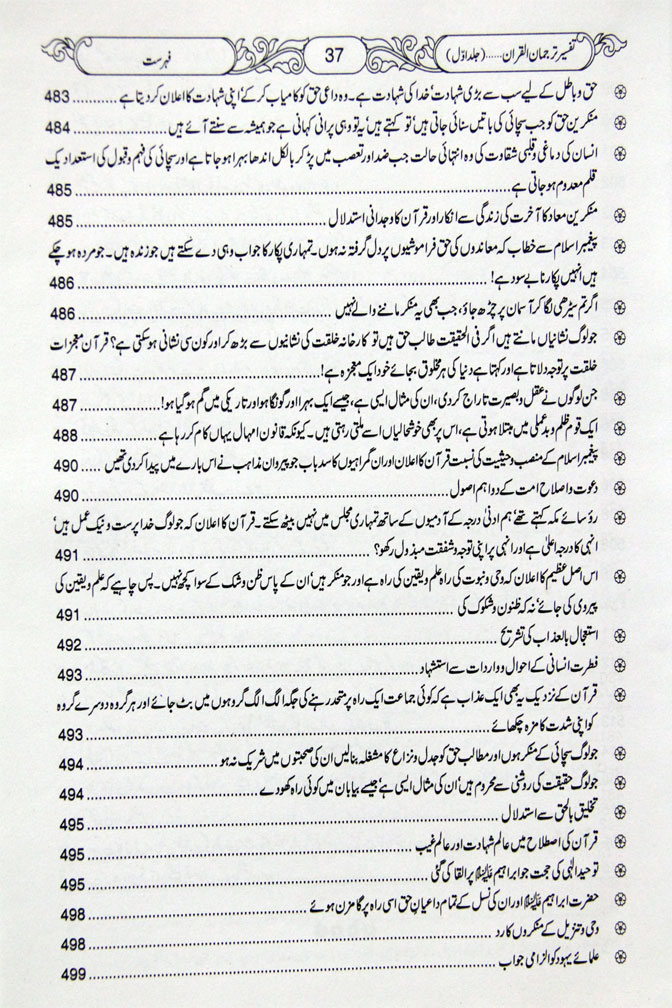 تفسیر ترجمان القران ...... (جلد اوّل)
37
فہرست
حق و باطل کے لیے سب سے بڑی شہادت' خدا کی شہادت ہے۔ وہ داعی حق کو کامیاب کر کے' اپنی شہادت کا اعلان کر دیتا ہے ........... 483
منکرین حق کو جب سچائی کی باتیں سنائی جاتی ہیں' تو کہتے ہیں' یہ تو وہی پرانی کہانی ہے جو ہمیشہ سے سنتے آئے ہیں ........... 484
انسان کی دماغی و قلبی شقاوت کی وہ انتہائی حالت جب ضد اور تعصب میں پڑ کر بالکل اندھا بہرا ہو جاتا ہے اور سچائی کی فہم و قبول کی استعداد یک
قلم معدوم ہو جاتی ہے ........... 485
منکرین معاد کا آخرت کی زندگی سے انکار اور قرآن کا وجدانی استدلال ........... 485
پیغمبر اسلام سے خطاب کہ معاندوں کی حق فراموشیوں پر دل گرفتہ نہ ہوں۔ تمہاری پکار کا جواب وہی دے سکتے ہیں جو زندہ ہیں۔ جو مردہ ہو چکے
ہیں انہیں پکارنا بے سود ہے! ........... 486
اگر تم سیڑھی لگا کر آسمان پر چڑھ جاؤ، جب بھی یہ منکر ماننے والے نہیں ........... 486
جو لوگ نشانیاں مانتے ہیں اگر فی الحقیقت طالب حق ہیں تو کارخانہ خلقت کی نشانیوں سے بڑھ کر اور کون سی نشانی ہو سکتی ہے؟ قرآن معجزات
خلقت پر توجہ دلاتا ہے اور کہتا ہے دنیا کی ہر مخلوق بجائے خود ایک معجزہ ہے! ........... 487
جن لوگوں نے عقل و بصیرت تاراج کر دی، ان کی مثال ایسی ہے، جیسے ایک بہرا اور گونگا ہو اور تاریکی میں گم ہو گیا ہو! ........... 487
ایک قوم ظلم و بدعملی میں مبتلا ہوتی ہے، اس پر بھی خوشحالیاں اسے ملتی رہتی ہیں۔ کیونکہ قانون امہال یہاں کام کر رہا ہے ........... 488
پیغمبر اسلام کے منصب و حیثیت کی نسبت قرآن کا اعلان اور ان گمراہیوں کا سد باب جو پیروان مذاہب نے اس بارے میں پیدا کر دی تھیں ..... 490
دعوت و اصلاح امت کے دو اہم اصول ........... 490
رؤسائے مکہ کہتے تھے' ہم ادنیٰ درجہ کے آدمیوں کے ساتھ تمہاری مجلس میں نہیں بیٹھ سکتے۔ قرآن کا اعلان کہ جو لوگ خدا پرست و نیک عمل ہیں'
انہی کا درجہ اعلیٰ ہے اور انہی پر اپنی توجہ و شفقت مبذول رکھو؟ ........... 491
اس اصل عظیم کا اعلان کہ وحی و نبوت کی راہ علم و یقین کی راہ ہے اور جو منکر ہیں' ان کے پاس ظن و شک کے سوا کچھ نہیں۔ پس چاہیے کہ علم و یقین کی
پیروی کی جائے' نہ کہ ظنون و شکوک کی ........... 491
استعجال بالعذاب کی تشریح ........... 492
فطرت انسانی کے احوال و واردات سے استشہاد ........... 493
قرآن کے نزدیک یہ بھی ایک عذاب ہے کہ کوئی جماعت ایک راہ پر متحد رہنے کی جگہ الگ الگ گروہوں میں بٹ جائے اور ہر گروہ دوسرے گروہ
کو اپنی شدت کا مزہ چکھائے ........... 493
جو لوگ سچائی کے منکر ہوں اور مطالب حق کو جدل و نزاع کا مشغلہ بنالیں ان کی صحبتوں میں شریک نہ ہو ........... 494
جو لوگ حقیقت کی روشنی سے محروم ہیں' ان کی مثال ایسی ہے' جیسے بیابان میں کوئی راہ کھو دے ........... 494
تخلیق بالحق سے استدلال ........... 495
قرآن کی اصطلاح میں عالم شہادت اور عالم غیب ........... 495
توحید الٰہی کی حجت جو ابراہیم علیہ السلام پر القا کی گئی ........... 495
حضرت ابراہیم علیہ السلام اور ان کی نسل کے تمام داعیان حق اسی راہ پر گامزن ہوئے ........... 498
وحی و تنزیل کے منکروں کا رد ........... 498
علمائے یہود کو الزامی جواب ........... 499